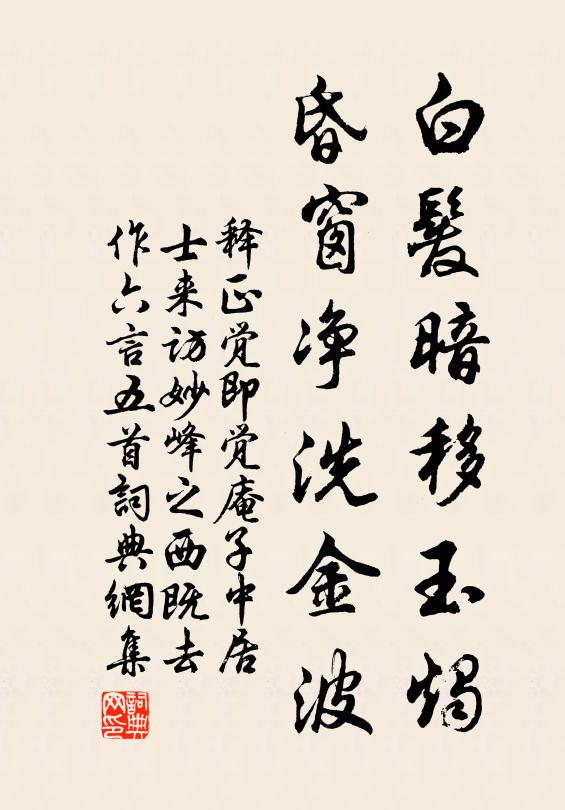 白髮暗移玉燭
昏窗净洗金波
释正觉即觉庵子中居
士来访妙峰之西既去
作六言五首詞典網集
詞典网印